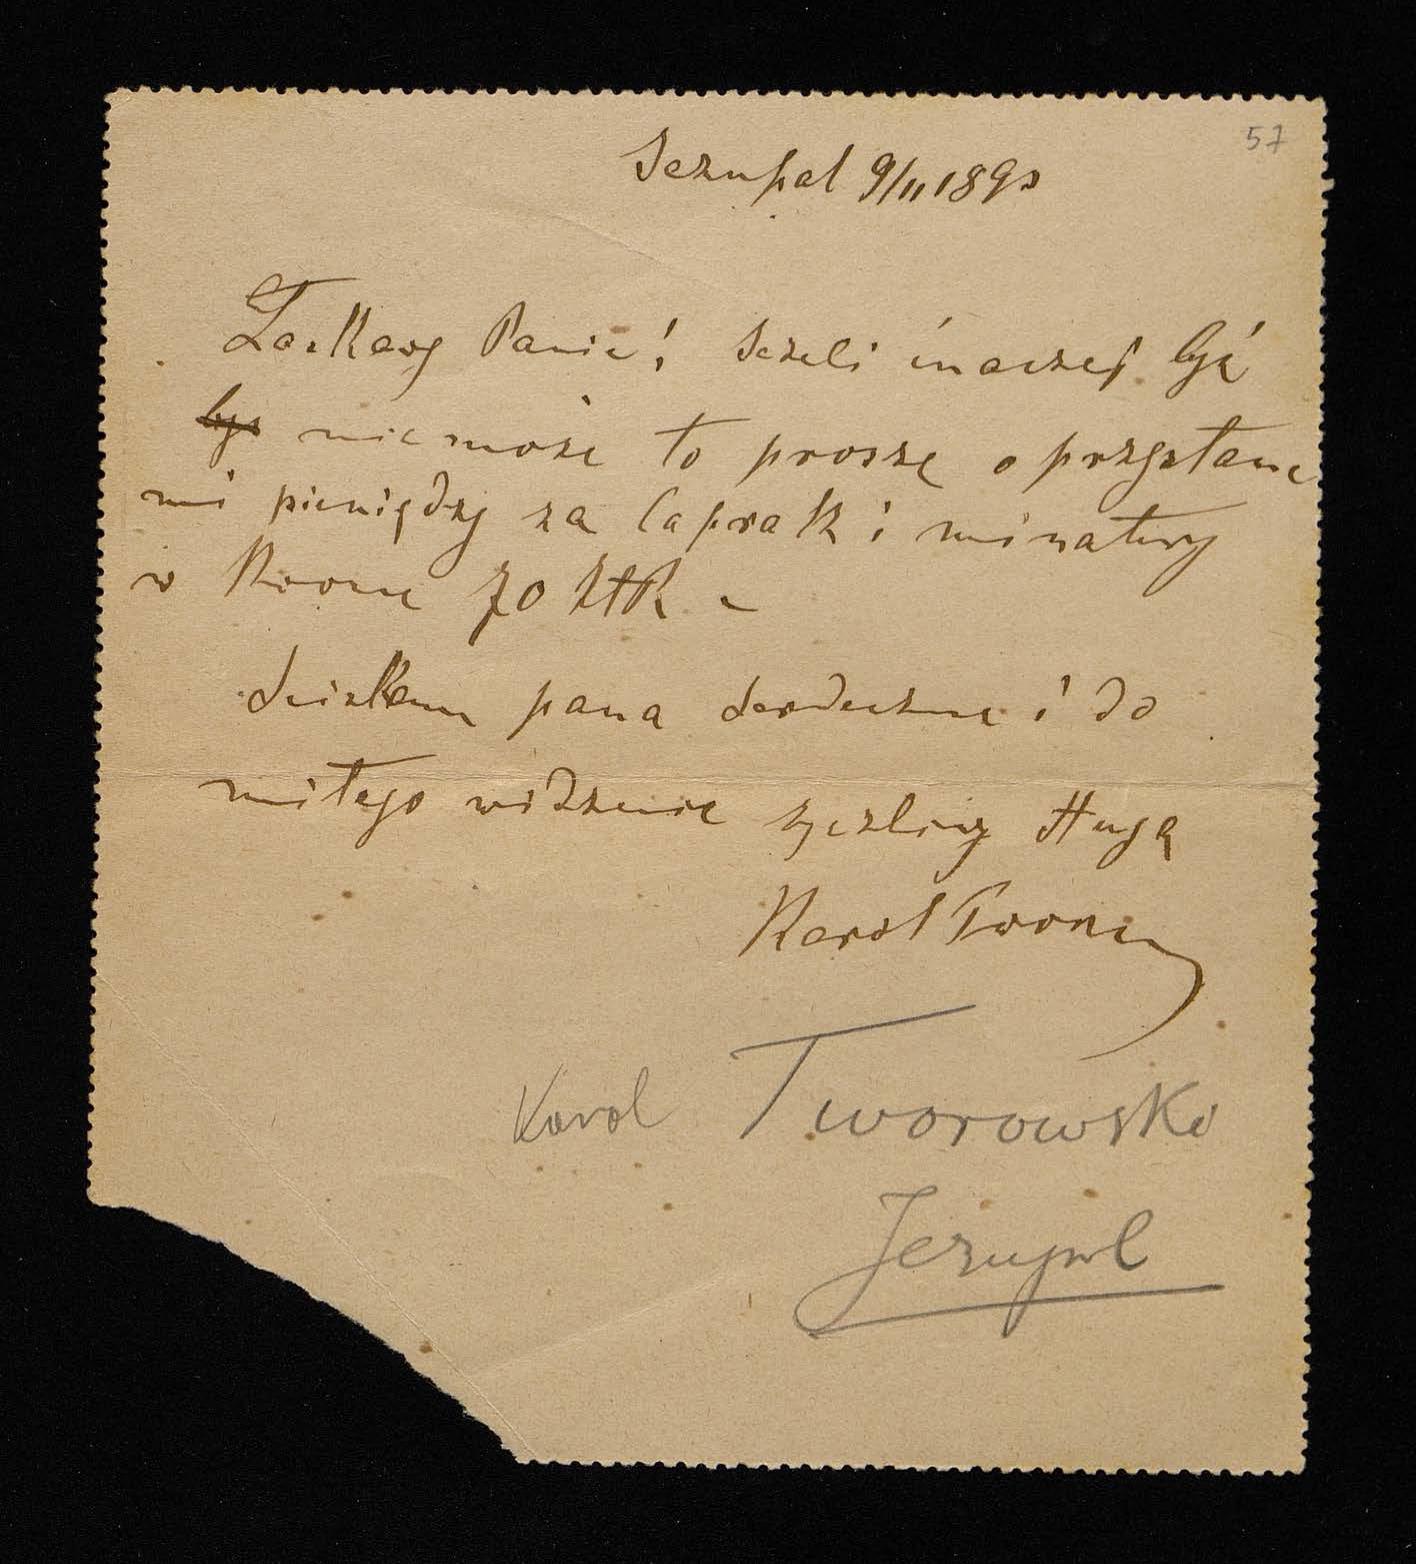 57
Jezupol 9/11 189
Łaskawy Panie! Jeżeli inaczej być
nie może to proszę o przysłanie
mi pieniędzy za i miniatury
w kwocie 70 ZłR –
Ściskam pana serdecznie i do
miłego widzenia życzliwy sługa
Karol
Karol Tworowski
Jezupol